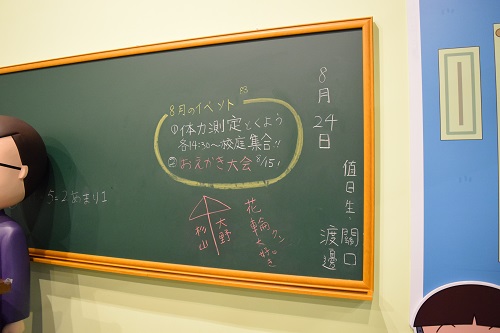 8月24日
値日生
關口
渡邊
8月のイベント
8/3
①体力測定とくよう
各14:30～校庭集合!!
②おえかき大会 8/15!
大野
杉山
花輪クン
大好き
5-2あまり1